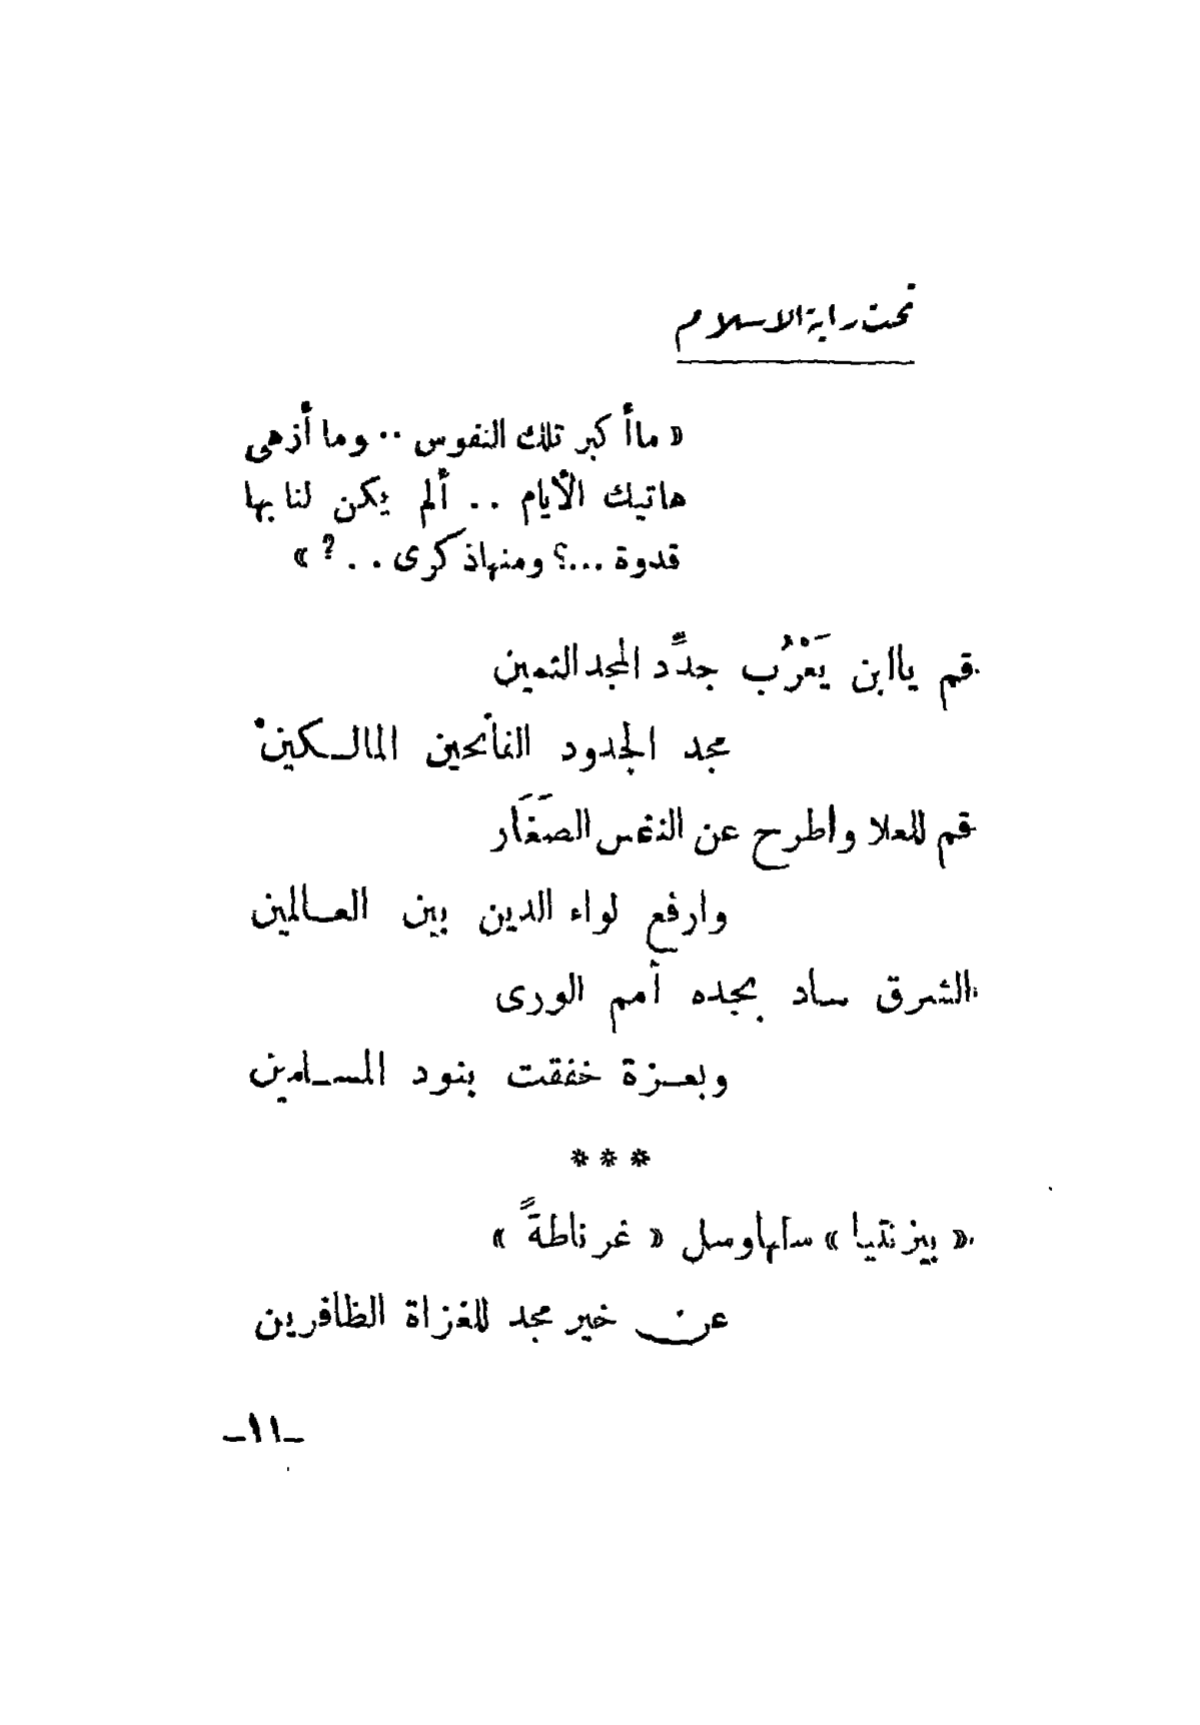 تحت راية الاسلام
« ما أكبر تلك النفوس .. وما أزهى
هاتيك الأيام .. ألم يكن لنا بها
قدوة ...؟ ومنها ذكرى .. ؟ »
قم ياابن يَعْرُب جدِّد المجد الثمين
مجد الجدود الفاتحين المالـكين
قم للعلا واطرح عن النفس الصَغَار
وارفع لواء الدين بين العـالمين
الشرق ساد بمجده أمم الورى
وبعـزة خفقت بنود المسـلمين
* * *
« بيزنتيا » سلها وسل « غرناطةً »
عن خير مجد للغزاة الظافرين
-١١-